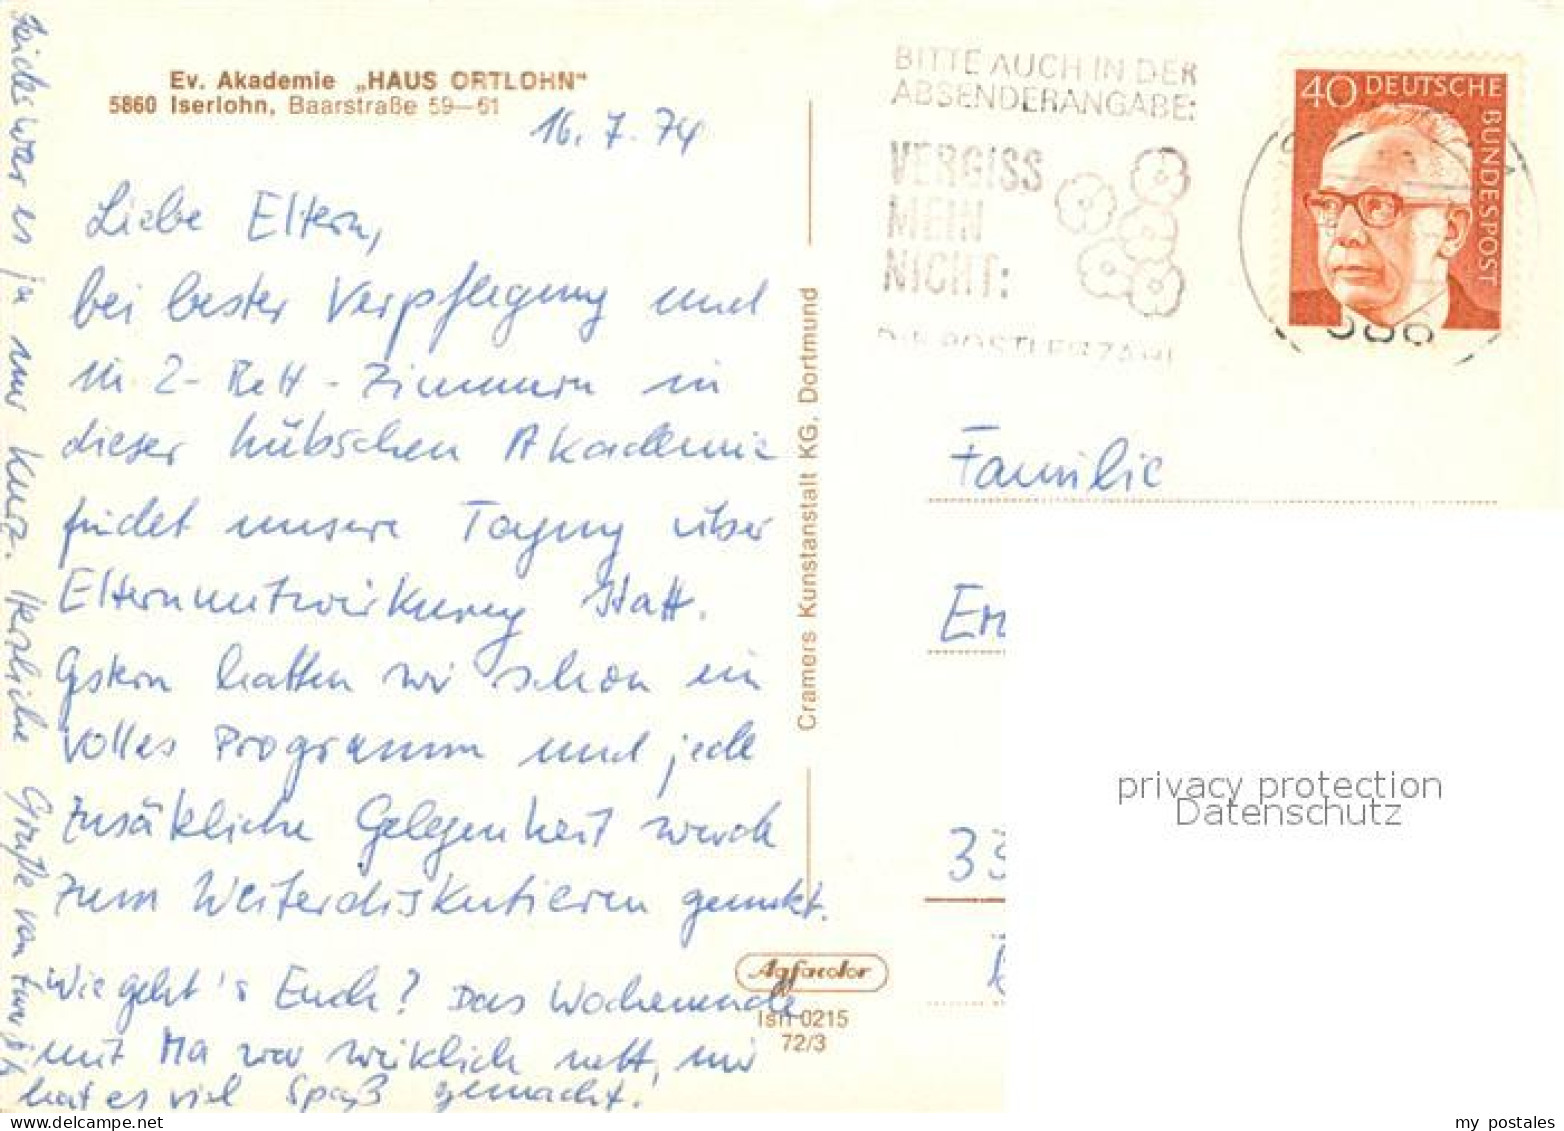 Ev. Akademie „HAUS ORTLOHN“
5860 Iserlohn, Baarstraße 59—61
16. 7. 74
Liebe Eltern,
bei bester Verpflegung und
in 2-Bett-Zimmern in
dieser hübschen Akademie
findet unsere Tagung über
Elternmitwirkung statt.
Gestern hatten wir schon ein
volles Programm und jede
zusätzliche Gelegenheit wurde
zum Weiterdiskutieren genutzt.
Wie geht's Euch? Das Wochenende
mit Ma war wirklich nett, mir
hat es viel Spaß gemacht!
Leider war es ja nur kurz. Herzliche Grüße von
Cramers Kunstanstalt KG, Dortmund
Agfacolor
Isn 0215
72/3
BITTE AUCH IN DER
ABSENDERANGABE:
VERGISS
MEIN
NICHT:
DIE POSTLEITZAHL
40 DEUTSCHE
BUNDESPOST
586
Familie
Em
33
privacy protection
Datenschutz
my postales
www.delcampe.net